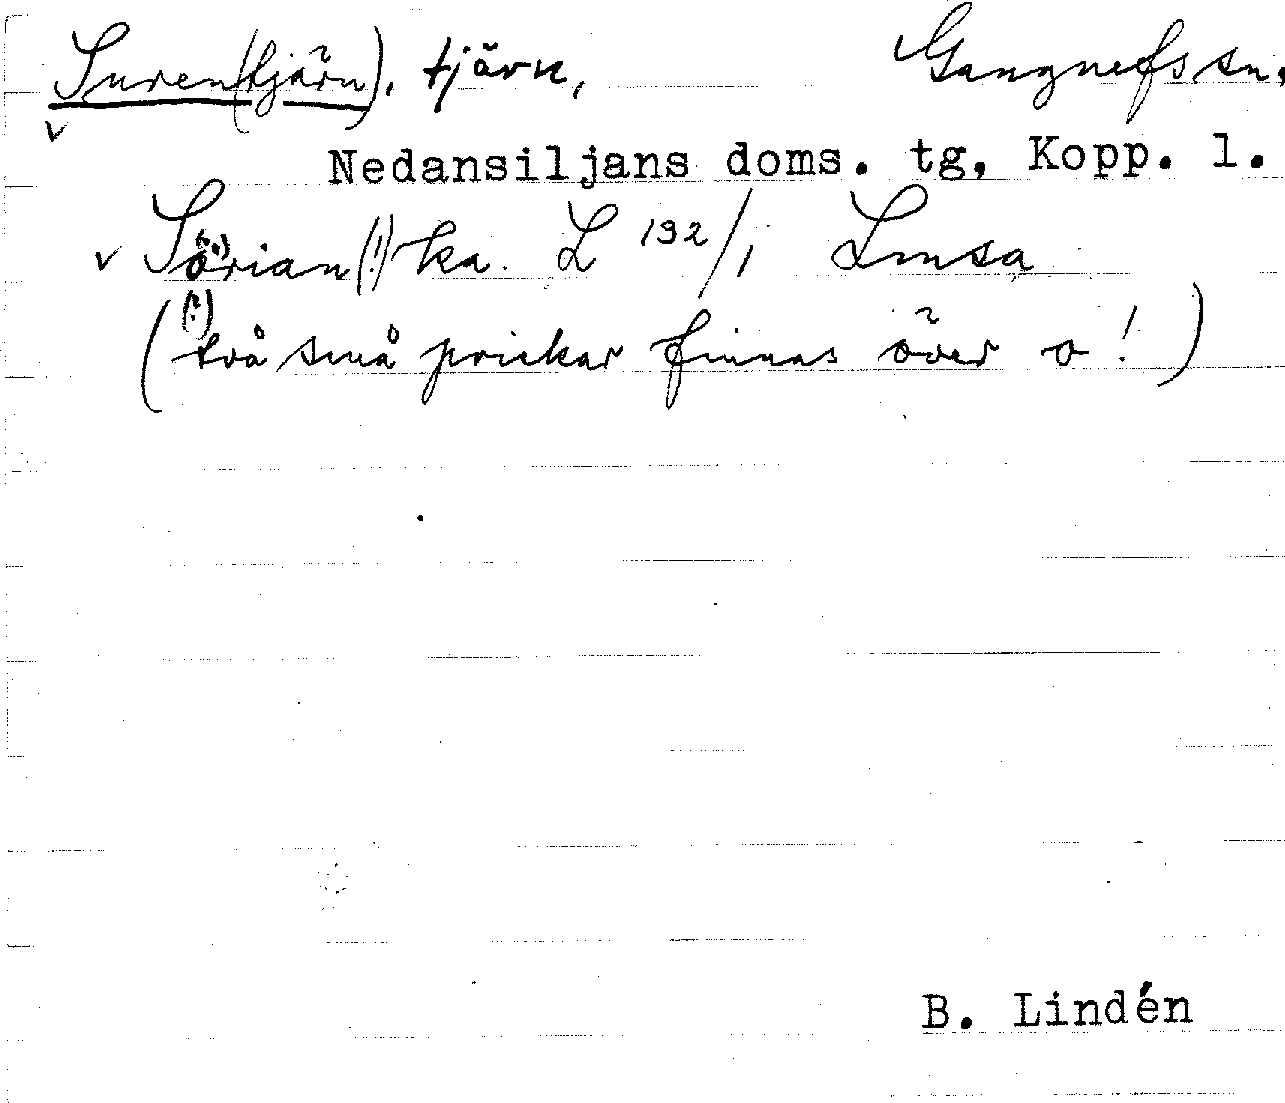 Suren(tjärn), tjärn, Gangnefs sn,
Nedansiljans doms. tg, Kopp. l.
v Sörian(!) ka. L 192/1 Lmsa
((?) två små prickar finnas över o!)
B. Lindén